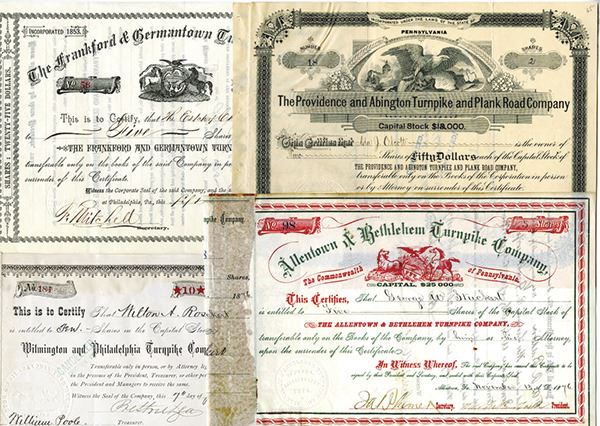 INCORPORATED 1853.
The Frankford & Germantown Tu
No 56
SHARES: TWENTY-FIVE DOLLARS.
This is to Certify, that
Five Shares
THE FRANKFORD AND GERMANTOWN TURN
transferable only on the books of the said Company in per
surrender of this Certificate.
Witness the Corporate Seal of the said Company, and the
at Philadelphia, Pa., this
Secretary.
INCORPORATED UNDER THE LAWS OF THE STATE OF
PENNSYLVANIA
NUMBER
18
SHARES
2
The Providence and Abington Turnpike and Plank Road Company
Capital Stock $18,000.
This Certifies that is the owner of
Shares of Fifty Dollars each of the Capital Stock of
THE PROVIDENCE AND ABINGTON TURNPIKE AND PLANK ROAD COMPANY,
transferable only on the Books of the Corporation in person
or by Attorney on surrender of this Certificate.
No. 184
★10★
This is to Certify That Wilton A.
is entitled to Ten Shares in the Capital Stock
Wilmington and Philadelphia Turnpike Com
Transferable only in person, or by Attorney
in the presence of the President, Treasurer, or other
the President and Managers to receive the same.
Witness the Seal of the Company, this 7th day of
William Poole
Treasurer.
npike Company,
Shares,
187
No 98
5 Shares
Allentown & Bethlehem Turnpike Company,
The Commonwealth of Pennsylvania.
CAPITAL, $25 000
This Certifies, That George W
is entitled to Five Shares of the Capital Stock of
THE ALLENTOWN & BETHLEHEM TURNPIKE COMPANY,
transferable only on the Books of the Company, by him or his Attorney
upon the surrender of this Certificate.
In Witness Whereof, The said Company has caused this Certificate to be
signed by their President and Secretary, and sealed with their Corporate Seal,
Allentown, November 13th 1876
Secretary.